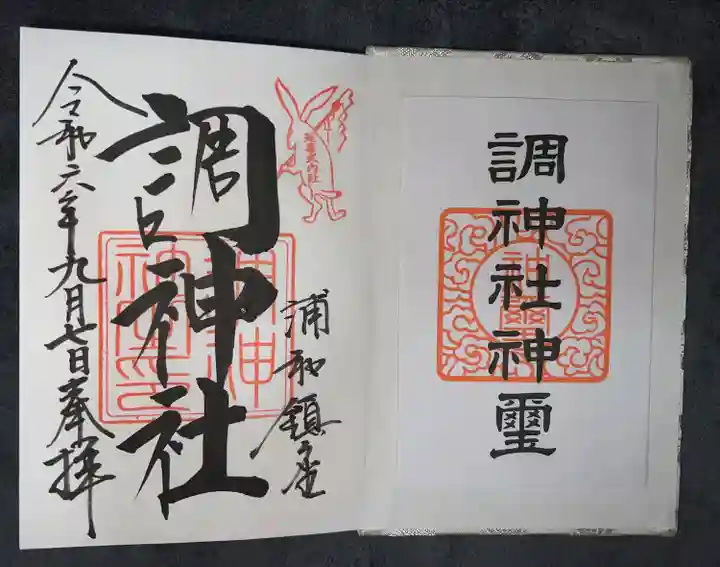 調神社神璽
神璽
延喜式内社
浦和鎮座
調神社
令和六年九月七日奉拝